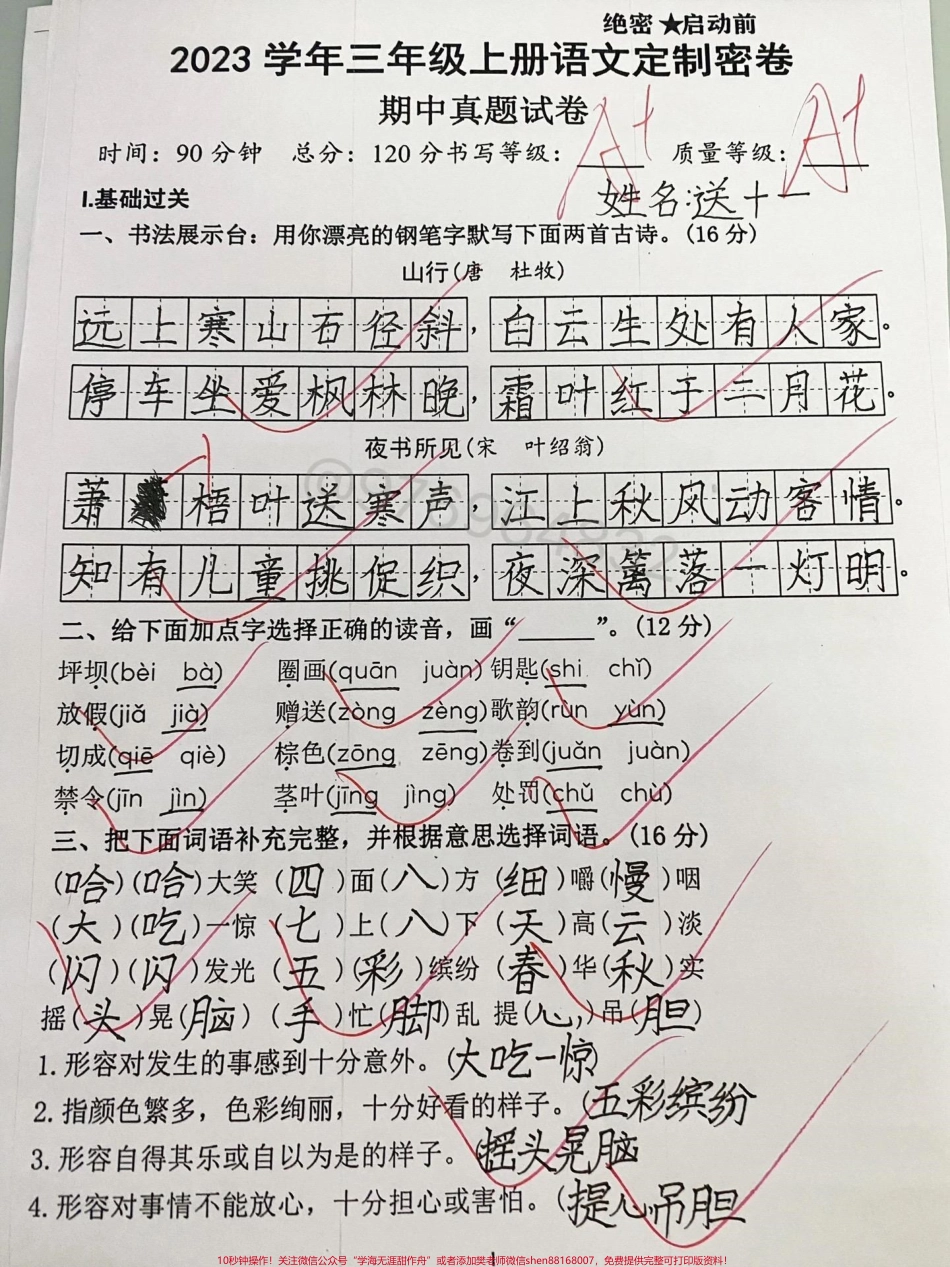 绝密 ★启动前
2023 学年三年级上册语文定制密卷
期中真题试卷
时间：90 分钟 总分：120 分书写等级：A+ 质量等级：A+
姓名：送十一
I.基础过关
一、书法展示台：用你漂亮的钢笔字默写下面两首古诗。(16 分)
山行(唐 杜牧)
远上寒山石径斜，白云生处有人家。
停车坐爱枫林晚，霜叶红于二月花。
夜书所见(宋 叶绍翁)
萧 梧叶送寒声，江上秋风动客情。
知有儿童挑促织，夜深篱落一灯明。
二、给下面加点字选择正确的读音，画“______”。(12 分)
坪坝(bèi bà) 圈画(quān juàn) 钥匙(shi chǐ)
放假(jiǎ jià) 赠送(zòng zèng) 歌韵(rùn yùn)
切成(qiē qiè) 棕色(zōng zēng) 卷到(juǎn juàn)
禁令(jīn jìn) 茎叶(jīng jìng) 处罚(chǔ chù)
三、把下面词语补充完整，并根据意思选择词语。(16 分)
(哈)(哈)大笑 (四)面(八)方 (细)嚼(慢)咽
(大)(吃)一惊 (七)上(八)下 (天)高(云)淡
(闪)(闪)发光 (五)(彩)缤纷 (春)华(秋)实
摇(头)晃(脑) (手)忙(脚)乱 提(心)吊(胆)
1.形容对发生的事感到十分意外。(大吃一惊)
2.指颜色繁多，色彩绚丽，十分好看的样子。(五彩缤纷
3.形容自得其乐或自以为是的样子。(摇头晃脑
4.形容对事情不能放心，十分担心或害怕。(提心吊胆
1
10秒钟操作！关注微信公众号“学海无涯甜作舟”或者添加樊老师微信shen88168007，免费提供完整可打印版资料！